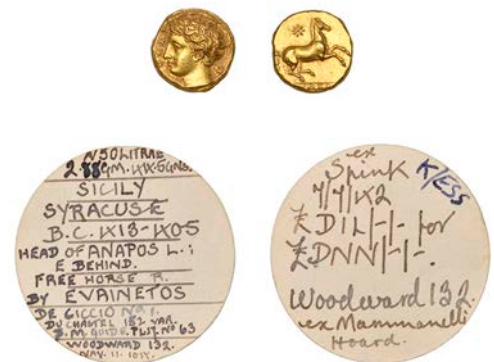 N 50 LITRAE
2.88GM. IXIX.5GNS.
SICILY
SYRACUSE
B.C. IX13-IX05
HEAD OF ANAPOS L.:
E BEHIND.
FREE HORSE R.
BY EVAINETOS
DE CICCIO No 1.
DU CHASTEL 132 VAR.
B.M. GUIDE. PL.27. No 63
WOODWARD 132.
ex
Spink K/ESS
£DIL/-/- for
£DNN/-/-.
Woodward 132.
ex Mammanelli
Hoard.